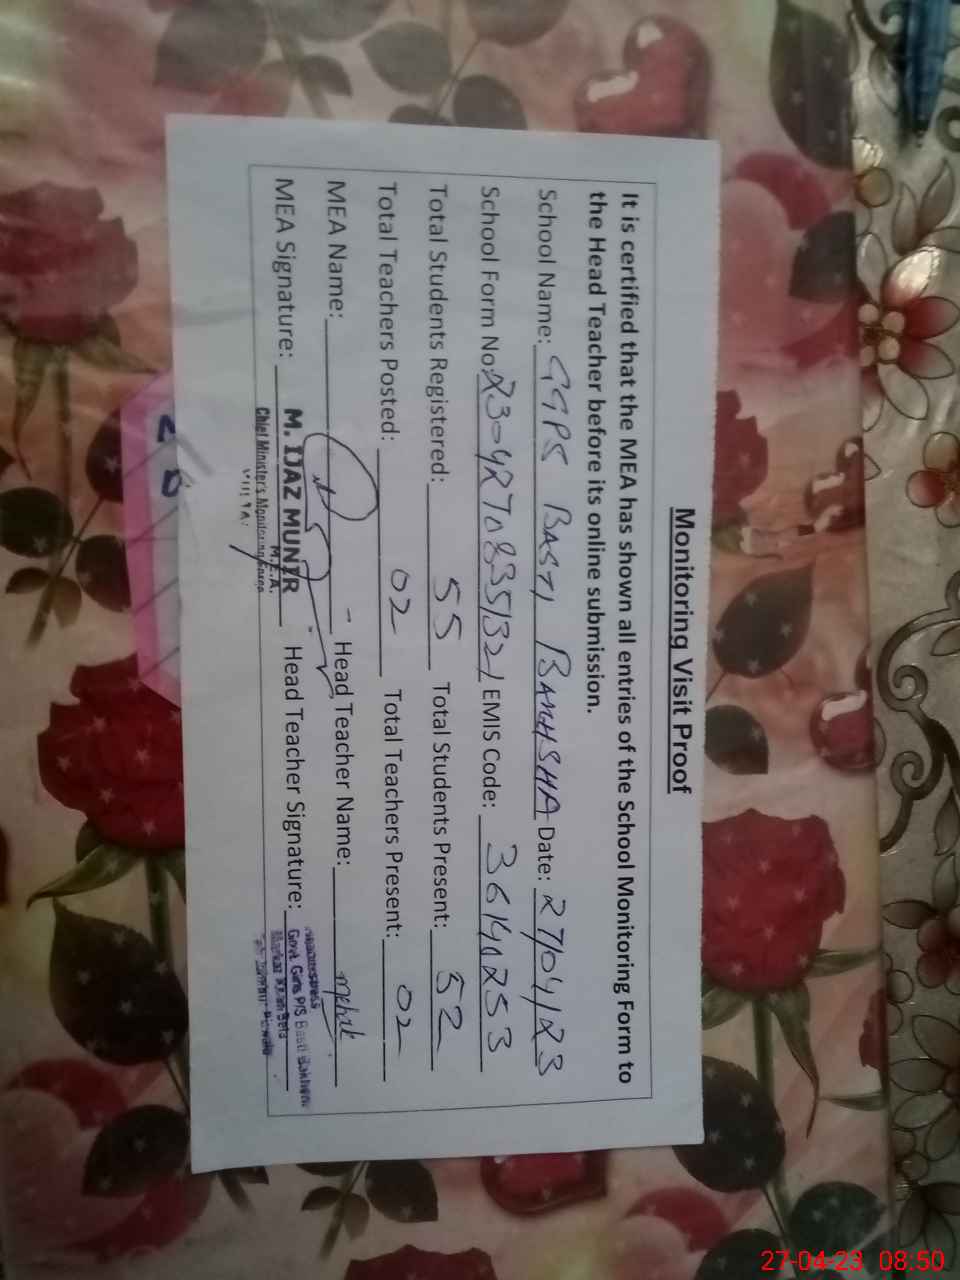 Monitoring Visit Proof
It is certified that the MEA has shown all entries of the School Monitoring Form to
the Head Teacher before its online submission.
School Name: GGPS BASTI BAKHSHA Date: 27/04/23
School Form No: EMIS Code: 36140253
Total Students Registered: 55 Total Students Present: 52
Total Teachers Posted: 02 Total Teachers Present: 02
MEA Name: Head Teacher Name: Mehak
MEA Signature: M. IJAZ MUNIR Head Teacher Signature: Govt. Girls P/S Basti
M.E.A.
Chief Minister's Monitoring Force
27-04-23 08:50